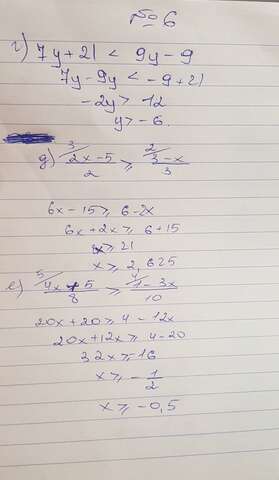 № 6
г) 7y+21 < 9y-9
7y-9y < -9+21
-2y > 12
y > -6.
д) 3/ 2x-5 / 2 ≥ 2/ 3-x / 3
6x-15 ≥ 6-2x
6x+2x ≥ 6+15
8x ≥ 21
x ≥ 2,625
е) 5/ 4x+5 / 8 ≥ 4/ 1-3x / 10
20x+20 ≥ 4-12x
20x+12x ≥ 4-20
32x ≥ -16
x ≥ -1/2
x ≥ -0,5